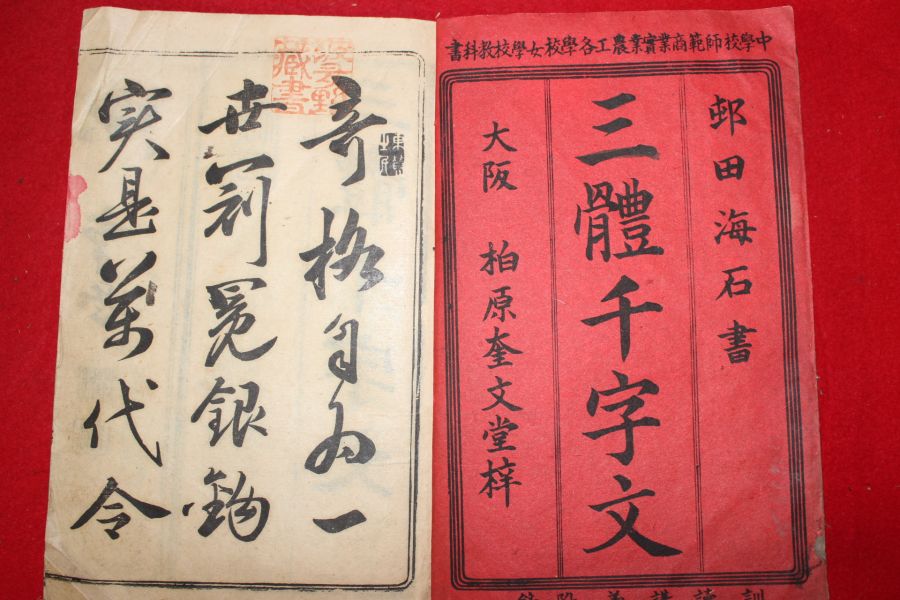 中學校師範商業實業農工各學校女學校教科書
邨田海石書
三體千字文
大阪 柏原奎文堂梓
訓讀講義附録
奇格自為一
世銀鉤
実是萬代令
藏書